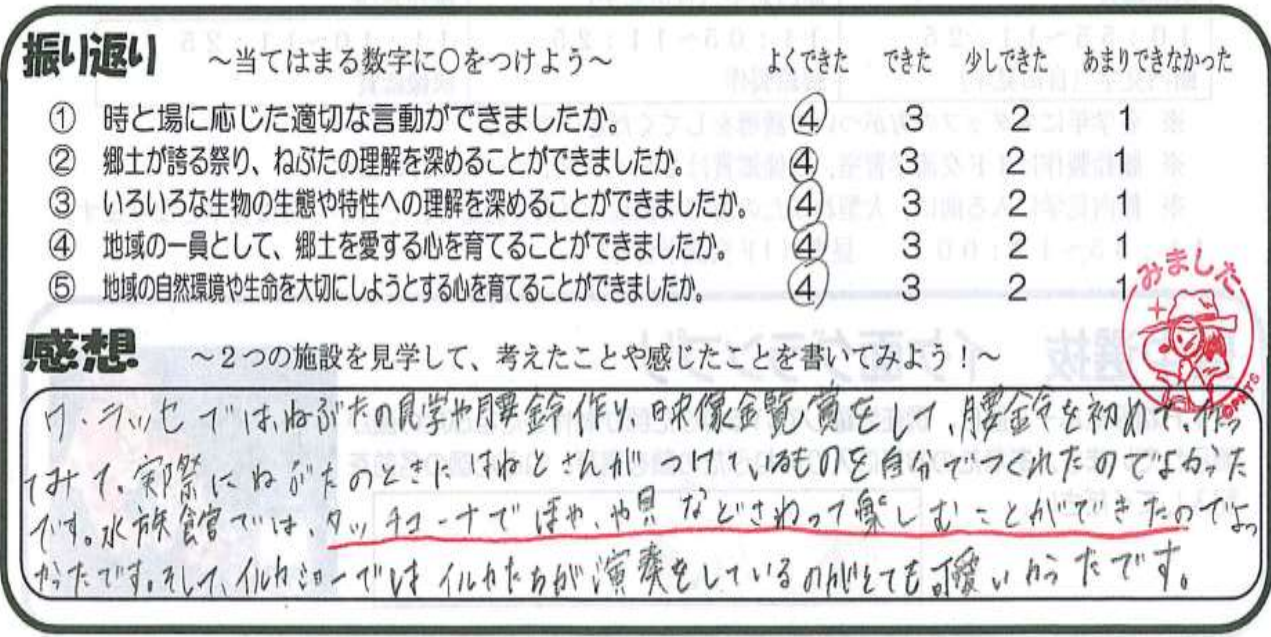 振り返り ～当てはまる数字に○をつけよう～ よくできた できた 少しできた あまりできなかった
① 時と場に応じた適切な言動ができましたか。 4 3 2 1
② 郷土が誇る祭り、ねぶたの理解を深めることができましたか。 4 3 2 1
③ いろいろな生物の生態や特性への理解を深めることができましたか。 4 3 2 1
④ 地域の一員として、郷土を愛する心を育てることができましたか。 4 3 2 1
⑤ 地域の自然環境や生命を大切にしようとする心を育てることができましたか。 4 3 2 1
みました
感想 ～２つの施設を見学して、考えたことや感じたことを書いてみよう！～
ワ・ラッセでは、ねぶたの見学や腰鈴作り、映像鑑賞をして、腰鈴を初めて作っ
てみて、実際にねぶたのときにはねとさんがつけているものを自分で作れたのでよかった
です。水族館では、タッチコーナでほや、や貝などさわって楽しむことができたのでよ
かったです。そして、イルカショーではイルカたちが演奏をしているのがとても可愛いかったです。